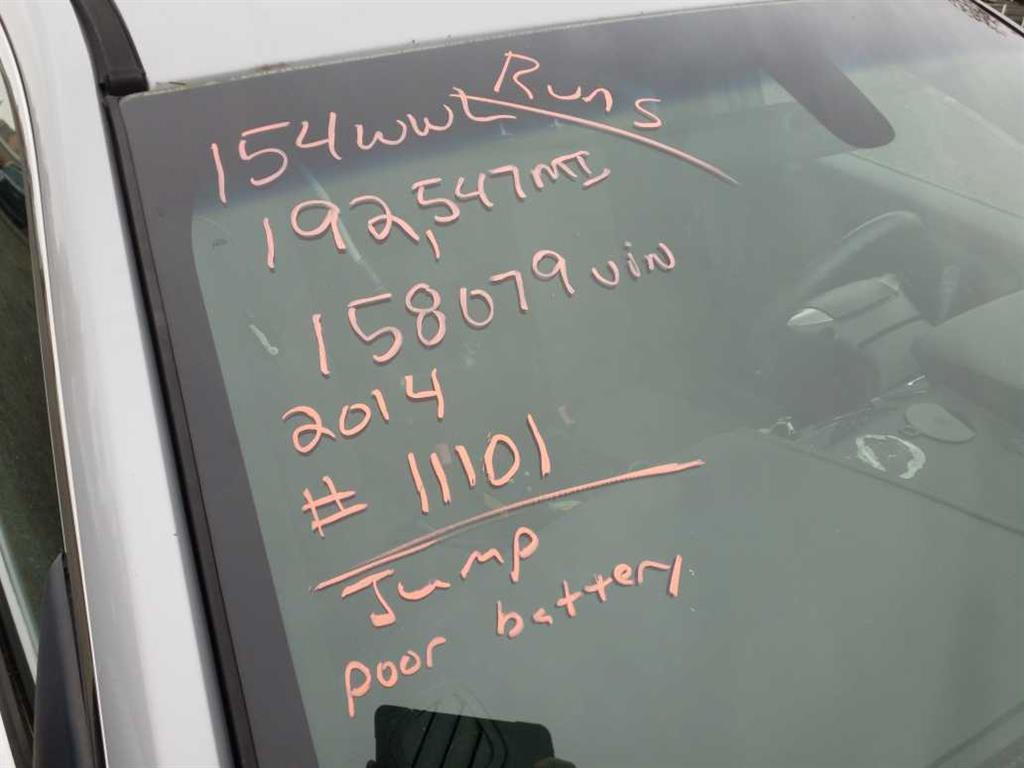 Runs
154WWL
192,547MI
158079 VIN
2014
# 11101
Jump
poor battery